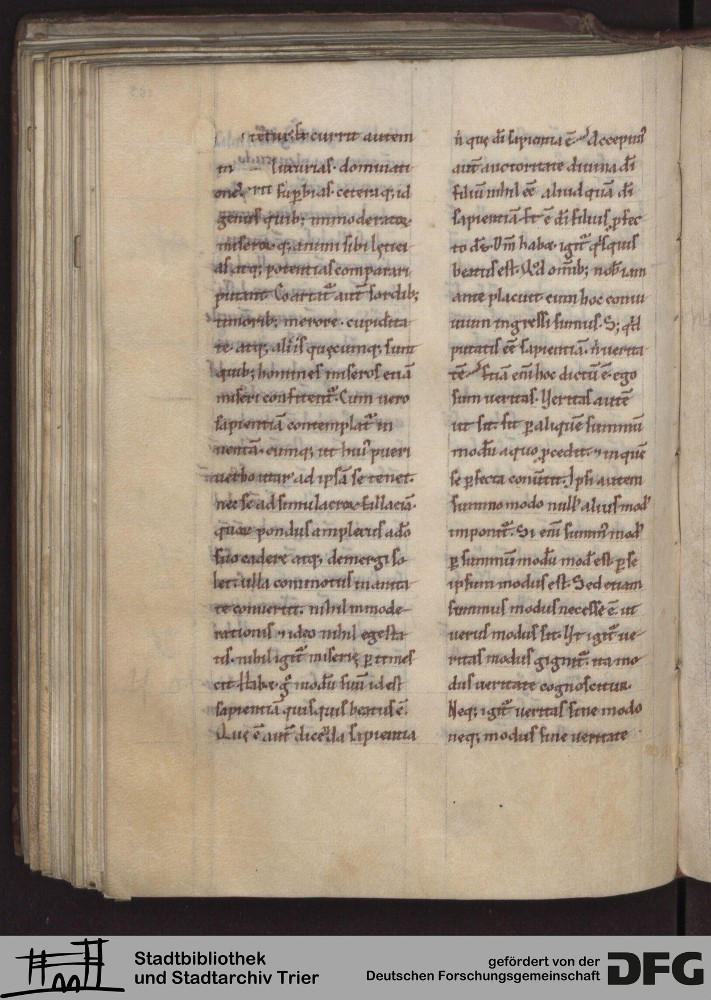 tetur. Ex currit autem
in luxurias. dominati
ones. sup̄bias. ceteraq; id
genus quib; immoderatoꝝ
miseroꝝq; animi sibi lętici
as atq; potentias comparari
putant. Coartat᷑ aut̄ sordib;
timorib; merore. cupidita
te. atq; aliis quęcumq; sunt
quib; homines miseros etiā
miseri confitent᷑. Cum uero
sapientiā contemplat᷑ in
uentā. cumq; ut hui᷒ pueri
uerbo utar ad ipsā se tenet.
nec se ad simulacroꝝ fallaciā.
quoꝝ pondus amplexus a dō
suo cadere atq; demergi so
let. ulla commotus inanita
te conuertit. nihil inmode
rationis ⁊ ideo nihil egesta
tis. nihil igit᷑ miserię ꝑtimes
cit. Habꝫ g̊ modū suū id est
sapientiā quisquis beatus ē.
Quę ē aut̄ dicenda sapientia
n̄ quę dī sapientia ē. Accepim᷒
aut̄ auctoritate diuina dī
filiū nihil eē aliud quā dī
sapientiā. Et ē dī filius ꝓfec
to dś. Dm̄ habꝫ igit᷑ q̇squis
beatus est. Qd̄ omīb; nob̄ iam
ante placuit cum hoc conui
uium ingressi sumus. S; q̇d
putatis eē sapientiā. n̄ uerita
tē. Etiā enī hoc dictū ē. ego
sum ueritas. Veritas autē
ut sit. fit ꝑ aliquē summū
modū a quo ꝓcedit. ⁊ in quē
se ꝑfecta conūtit. Ipsi autem
summo modo null᷒ alius mod᷒
imponit᷑. Si enī summ᷒ mod᷒
ꝑ summum modū mod᷒ est. ꝑ se
ipsum modus est. Sed etiam
summus modus necesse ē. ut
uerus modus sit. Vt igit᷑ ue
ritas modo gignit᷑. ita mo
dus ueritate cognoscitur.
Neq; igit᷑ ueritas sine modo
neq; modus sine ueritate
Stadtbibliothek
und Stadtarchiv Trier
gefördert von der
Deutschen Forschungsgemeinschaft
DFG